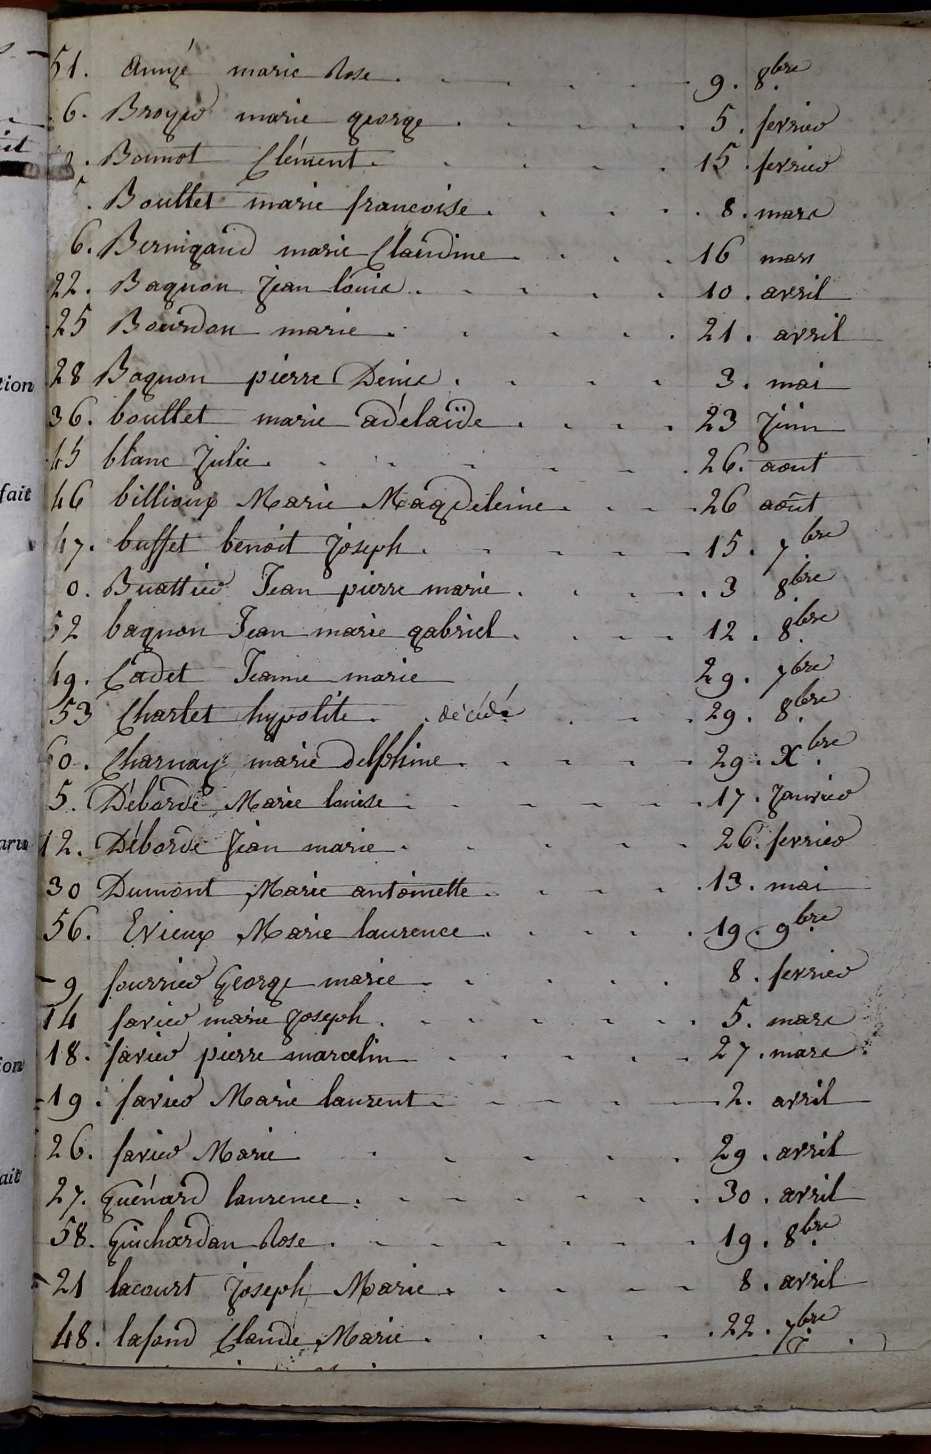 51. annyé marie Rose . . . . 9. 8bre
6. Broyer marie george . . . . 5. fevrier
Bonnot Clément . . . . 15. fevrier
Boullet marie francoise . . . . 8. mars
6. Bernigaud marie Claudine . . . . 16 mars
22. Bagnon jean louis . . . . 10. avril
25 Bourdon marie . . . . 21. avril
28 Bagnon pierre Denis . . . . 3. mai
36. boullet marie adélaïde . . . . 23 juin
45 blanc julie . . . . 26. aout
46 billioux Marie Magdeleine . . . . 26 août
47. buffet benoit joseph . . . . 15. 7bre
0. Buattier Jean pierre marie . . . . 3 8bre
52 bagnon Jean marie gabriel . . . . 12. 8bre
49. Cadet Jeanne marie 29. 7bre
53 Charlet hypolite . . décédé . . . 29. 8bre
60. Charnay marie delphine . . . . 29. Xbre.
5. Déborde Marie louise . . . . 17. janvier
12. Déborde jean marie . . . . 26. fevrier
30 Dumont Marie antoinette . . . . 13. mai
56. Evieux Marie laurence . . . . 19. 9bre
9 fourrier George marie . . . . 8. fevrier
14 favier marie joseph . . . . 5. mars
18. favier pierre marcelin . . . . 27. mars
19. favier Marie laurent . . . . 2. avril
26. favier Marie . . . . 29. avril
27. guénard laurence . . . . 30. avril
58. guichardan Rose . . . . 19. 8bre
21 lacourt joseph Marie . . . . 8. avril
48. lafond Claude Marie . . . . 22. 7bre